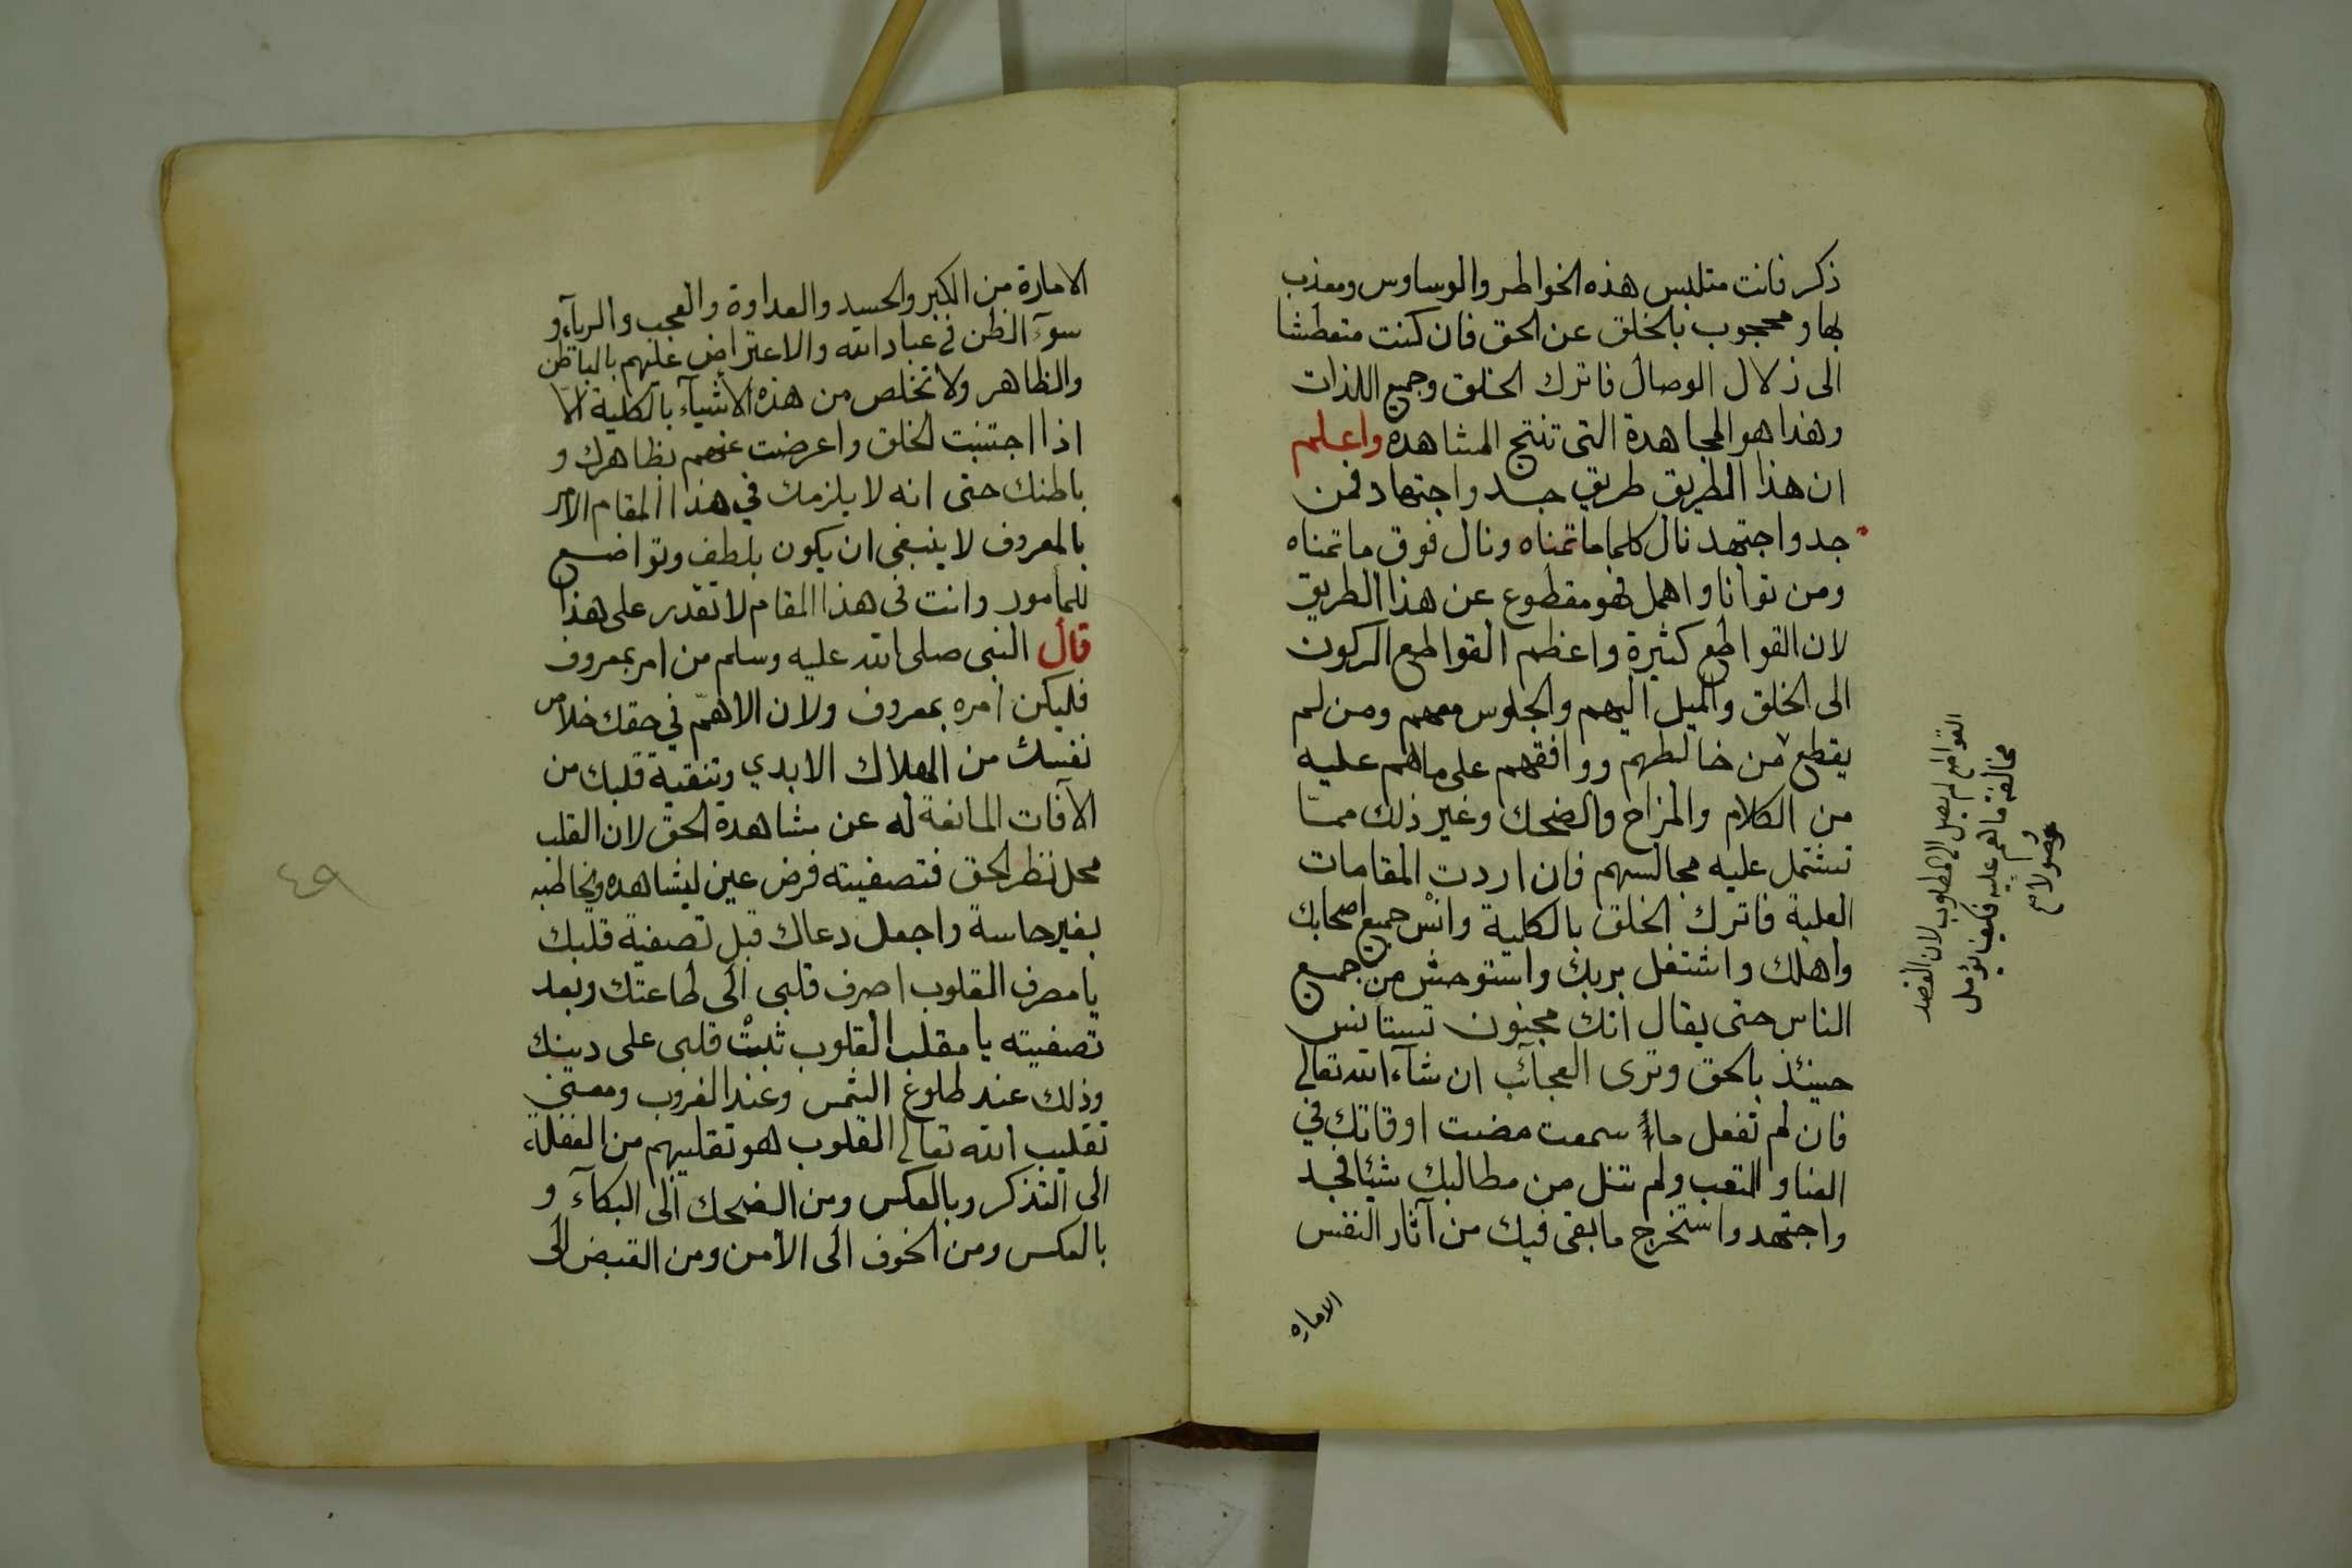 ذكر فانت متلبس هذه الخواطر والوساوس ومعذب
بها ومحجوب بالخلق عن الحق فان كنت متعطشا
الى زلال الوصال فاترك الخلق وجميع اللذات
وهذا هو المجاهدة التى تنتج المشاهده واعلم
ان هذا الطريق طريق جد واجتهاد فمن
جد واجتهد نال كلما ماتمناه ونال فوق ماتمناه
ومن توانا واهمل فهو مقطوع عن هذا الطريق
لان القواطع كثيرة واعظم القواطع الركون
الى الخلق والميل اليهم والجلوس معهم ومن لم
يقطع من خالطهم ووافقهم على ماهم عليه
من الكلام والمزاح والضحك وغير ذلك ممّا
تشتمل عليه مجالسهم فان اردت المقامات
العلية فاترك الخلق بالكلية وانس جميع اصحابك
واهلك واشتغل بربك واستوحش من جميع
الناس حتى يقال انك مجنون تستانس
حينئذ بالحق وترى العجائب ان شآء الله تعالى
فان لم تفعل ما سمعت مضت اوقاتك في
العنا والتعب ولم تنل من مطالبك شيئا فجد
واجتهد واستخرج مابقى فيك من آثار النفس
الاماره
القواطع لم يصل الى المطلوب لان القصد
مخالفة ماهم عليه فكيف يؤمل
وصولا
الامارة من الكبر والحسد والعداوة والعجب والريآء و
سوء الظن فى عباد الله والاعتراض عليهم بالباطن
والظاهر ولا تخلص من هذه الأشيآء بالكلية الّا
اذا اجتنبت الخلق واعرضت عنهم بظاهرك و
باطنك حتى انه لا يلزمك في هذا المقام الامر
بالمعروف لا ينبغى ان يكون بلطف وتواضع
للمأمور وانت فى هذا المقام لا تقدر على هذا
قال النبى صلى الله عليه وسلم من امر بمعروف
فليكن امره بمعروف ولان الاهمّ في حقك خلاص
نفسك من الهلاك الابدي وتنقية قلبك من
الآفات المانعة له عن مشاهدة الحق لان القلب
محل نظر الحق فتصفيته فرض عين ليشاهده ويخاطبه
بغير حاسة واجعل دعاك قبل تصفية قلبك
يا مصرف القلوب اصرف قلبى الى طاعتك وبعد
تصفيته يا مقلب القلوب ثبتْ قلبى على دينك
وذلك عند طلوع الشمس وعند الغروب ومعنى
تقليب الله تعالى القلوب هو تقليبهم من الغفلة
الى التذكر وبالعكس ومن الضحك الى البكآء و
بالعكس ومن الخوف الى الأمن ومن القبض الى
٤٩